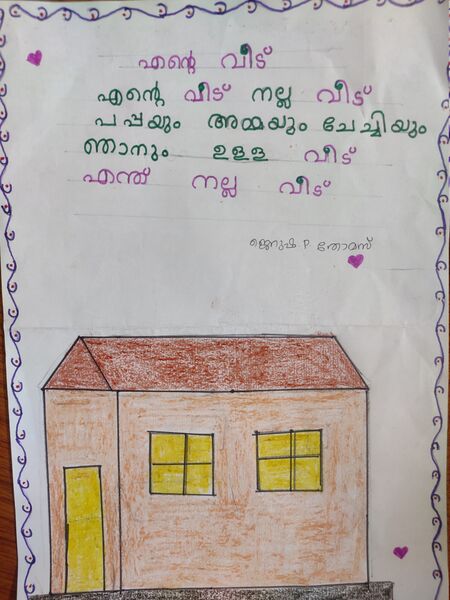 എന്റെ വീട്
എന്റെ വീട് നല്ല വീട്
പപ്പയും അമ്മയും ചേച്ചിയും
ഞാനും ഉള്ള വീട്
എന്ത് നല്ല വീട്
ജെറുഷ P തോമസ്